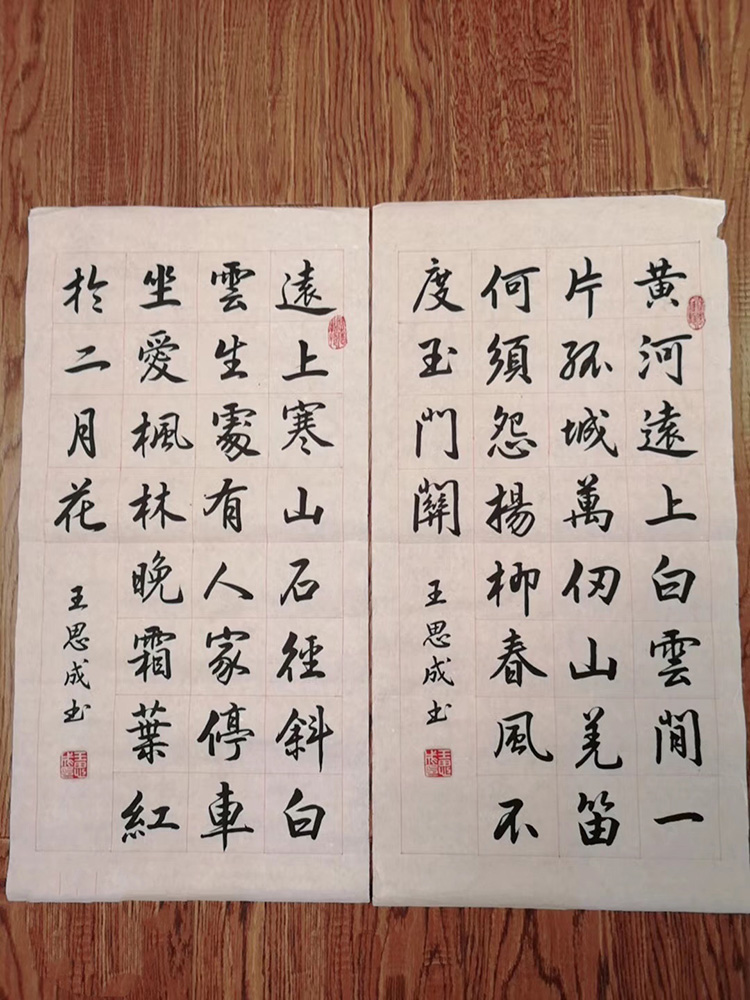 黄河遠上白雲間一
片孤城萬仞山羌笛
何須怨楊柳春風不
度玉門關
王思成书
遠上寒山石徑斜白
雲生處有人家停車
坐愛楓林晚霜葉紅
於二月花
王思成书